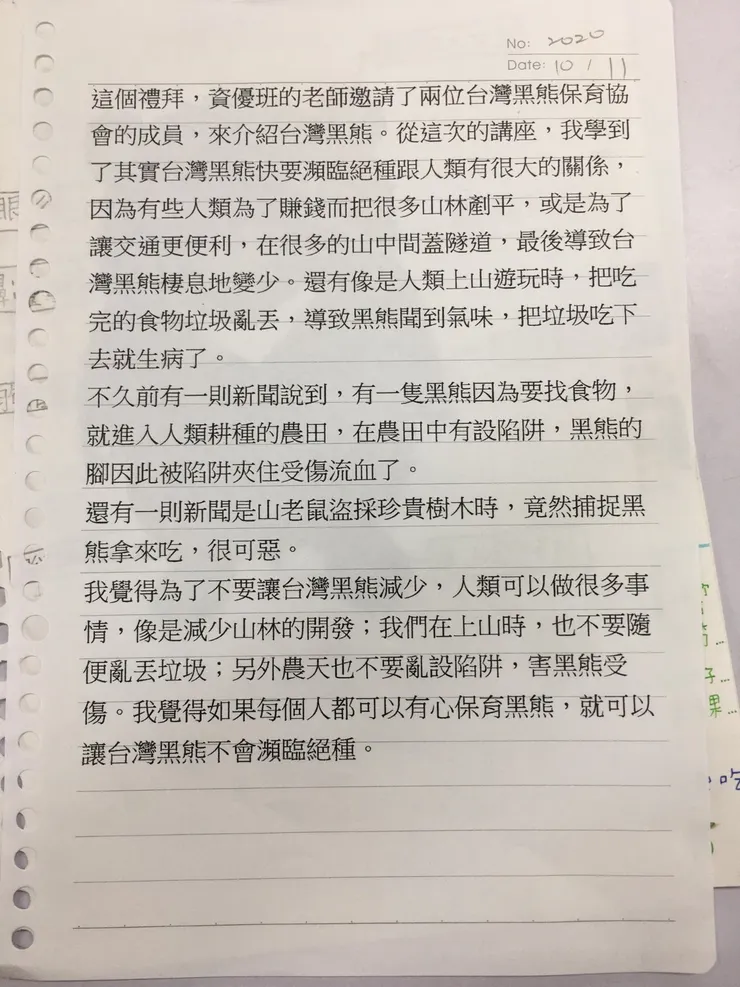 No: 2020
Date: 10 / 11
這個禮拜，資優班的老師邀請了兩位台灣黑熊保育協
會的成員，來介紹台灣黑熊。從這次的講座，我學到
了其實台灣黑熊快要瀕臨絕種跟人類有很大的關係，
因為有些人類為了賺錢而把很多山林剷平，或是為了
讓交通更便利，在很多的山中間蓋隧道，最後導致台
灣黑熊棲息地變少。還有像是人類上山遊玩時，把吃
完的食物垃圾亂丟，導致黑熊聞到氣味，把垃圾吃下
去就生病了。
不久前有一則新聞說到，有一隻黑熊因為要找食物，
就進入人類耕種的農田，在農田中有設陷阱，黑熊的
腳因此被陷阱夾住受傷流血了。
還有一則新聞是山老鼠盜採珍貴樹木時，竟然捕捉黑
熊拿來吃，很可惡。
我覺得為了不要讓台灣黑熊減少，人類可以做很多事
情，像是減少山林的開發；我們在上山時，也不要隨
便亂丟垃圾；另外農天也不要亂設陷阱，害黑熊受
傷。我覺得如果每個人都可以有心保育黑熊，就可以
讓台灣黑熊不會瀕臨絕種。
吃